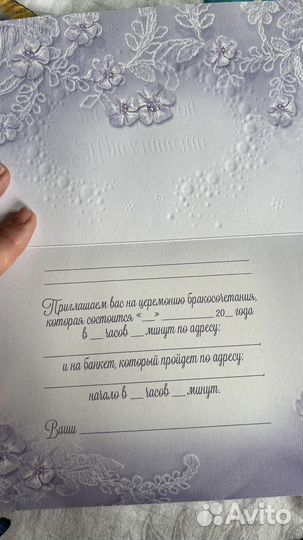 Приглашаем вас на церемонию бракосочетания,
которая состоится «__» ________ 20_ года
в __ часов __ минут по адресу:
____________________,
и на банкет, который пройдет по адресу:
____________________,
начало в __ часов __ минут.
Ваши ____________________
Avito